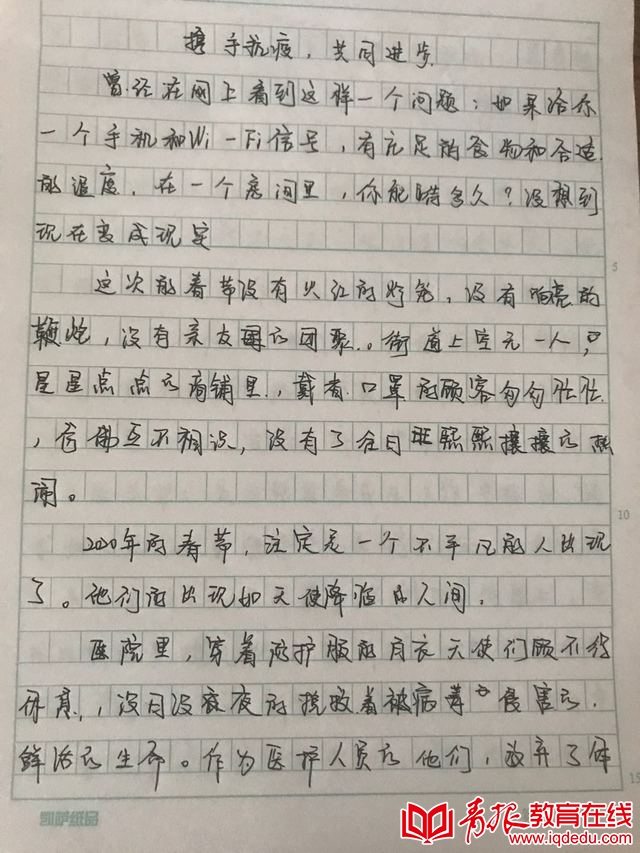 携手抗疫，共同进步
曾经在网上看到这样一个问题：如果给你
一个手机和Wi-Fi信号，有充足的食物和合适
的温度，在一个房间里，你能待多久？没想到
现在变成现实
这次的春节没有火红的灯笼，没有响亮的
鞭炮，没有亲友的团聚。街道上空无一人，
星星点点的商铺里，戴着口罩的顾客匆匆忙忙
，仿佛互不相识，没有了今日熙熙攘攘的热
闹。
2020年的春节，注定是一个不平凡的人出现
了。他们的出现如天使降临的人间，
医院里，穿着防护服的白衣天使们顾不得
休息，没日没夜的挽救着被病毒侵害的
鲜活的生命。作为医护人员的他们，放弃了休
5
10
15
凯萨纸品
青报教育在线
www.iqdedu.com